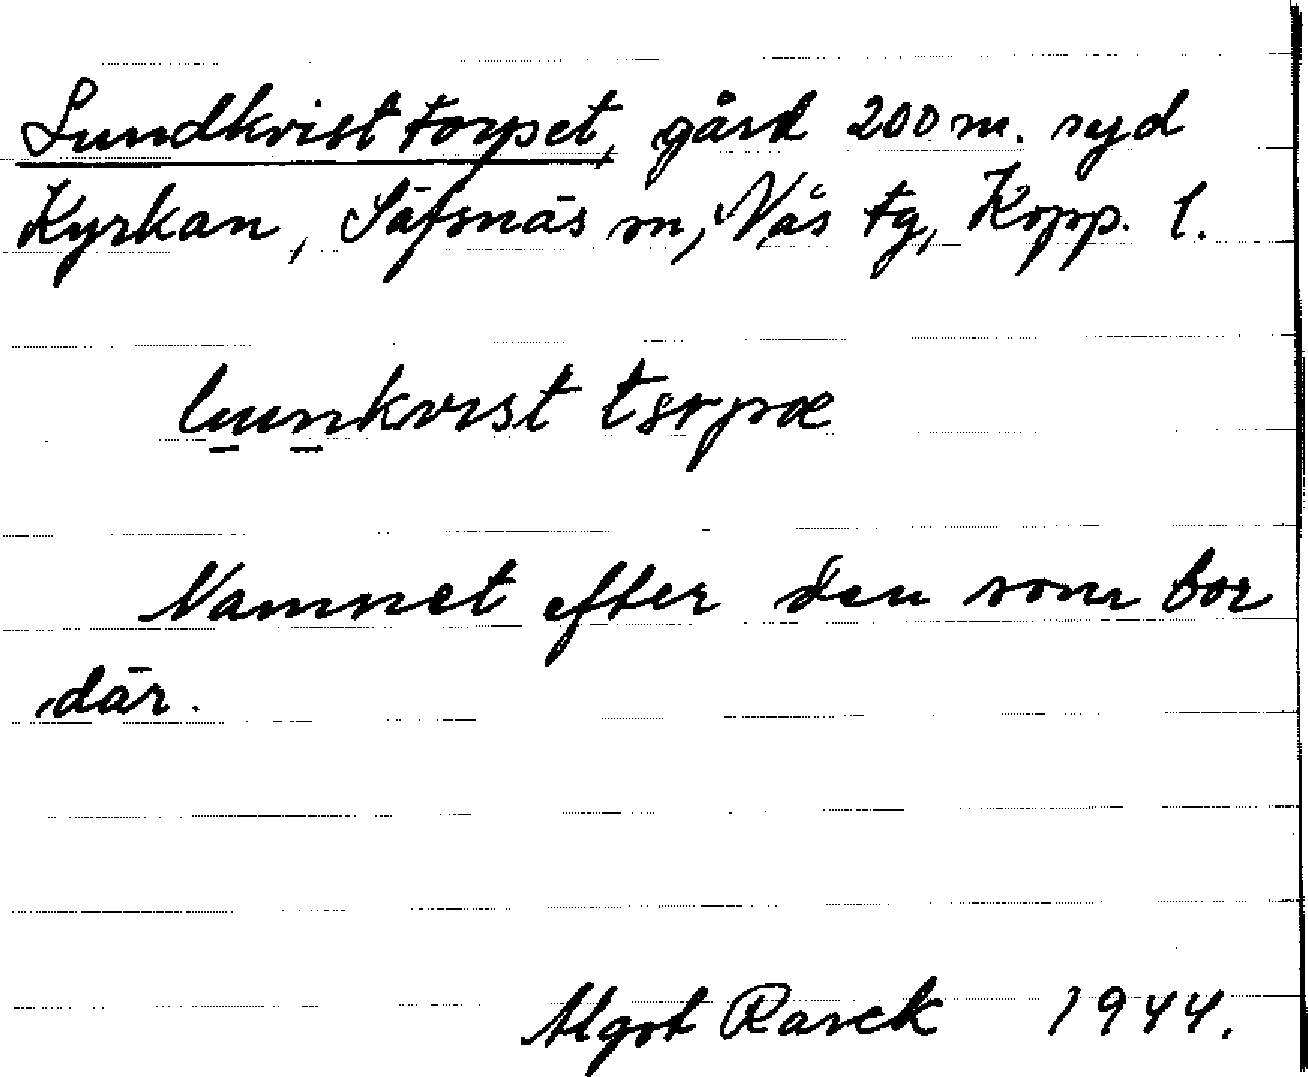 Lundkvisttorpet, gård 200 m. syd
Kyrkan, Säfsnäs sn, Nås tg, Kopp. l.
lunkvist
Namnet efter den som bor
där.
Algot 1944.